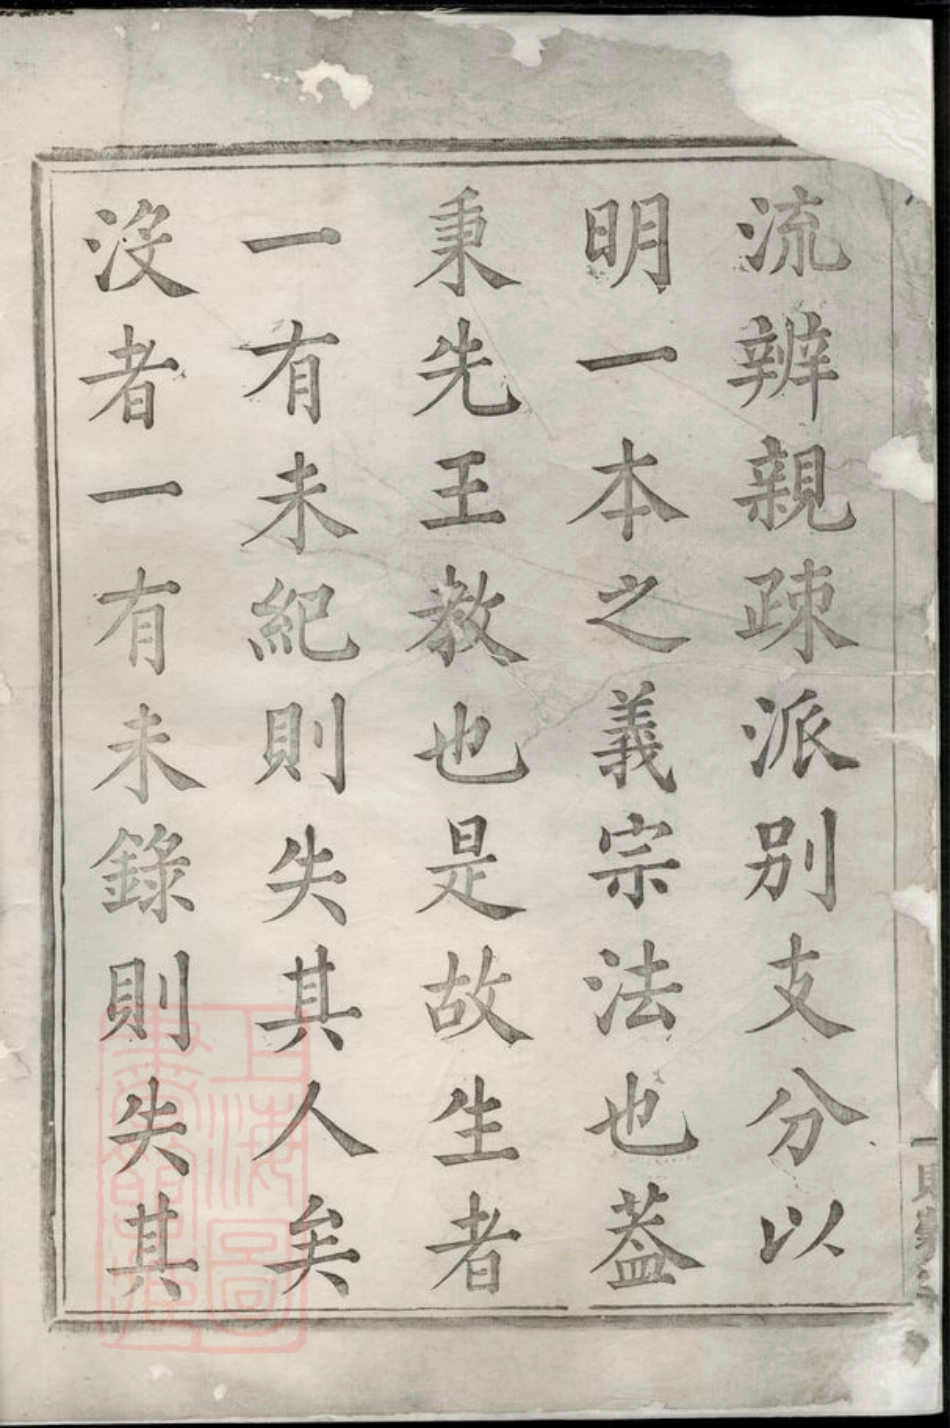 流辨親疎派别支分以
明一本之義宗法也葢
秉先王教也是故生者
一有未紀則失其人矣
沒者一有未錄則失其
上海圖
書館藏